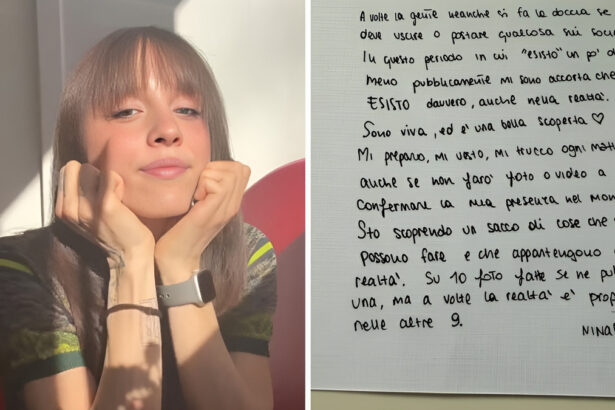 A volte la gente neanche si fa la doccia se
deve uscire o postare qualcosa sui
In questo periodo in cui "esisto" un po' di
meno pubblicamente mi sono accorta che
ESISTO davvero, anche nella realtà.
Sono viva, ed è una bella scoperta ♡
Mi preparo, mi vesto, mi trucco ogni
anche se non farò foto o video a
confermare la mia presenza nel
Sto scoprendo un sacco di cose che
possono fare e che appartengono
realtà. Su 10 foto fatte se ne
una, ma a volte la realtà è
nelle altre 9.
NINA